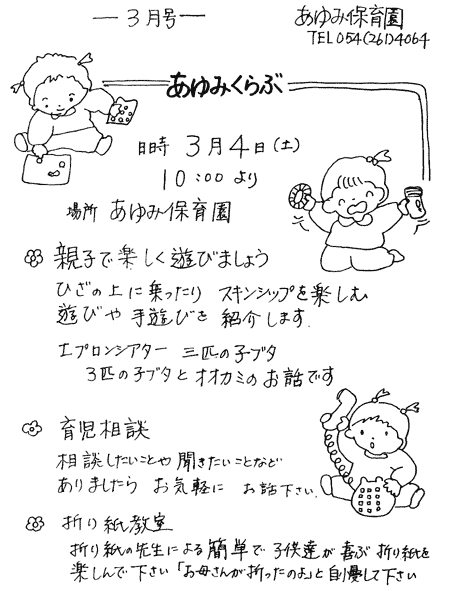 ー3月号ー
あゆみ保育園
TEL054(261)4064
あゆみくらぶ
日時 3月4日(土)
10:00より
場所 あゆみ保育園
親子で楽しく遊びましょう
ひざの上に乗ったり スキンシップを楽しむ
遊びや 手遊びを 紹介します.
エプロンシアター 三匹の子ブタ
3匹の子ブタとオオカミのお話です
育児相談
相談したいことや聞きたいことなど
ありましたら お気軽に お話下さい.
折り紙教室
折り紙の先生による簡単で子供達が喜ぶ折り紙を
楽しんで下さい「お母さんが折ったのよ」と自慢して下さい